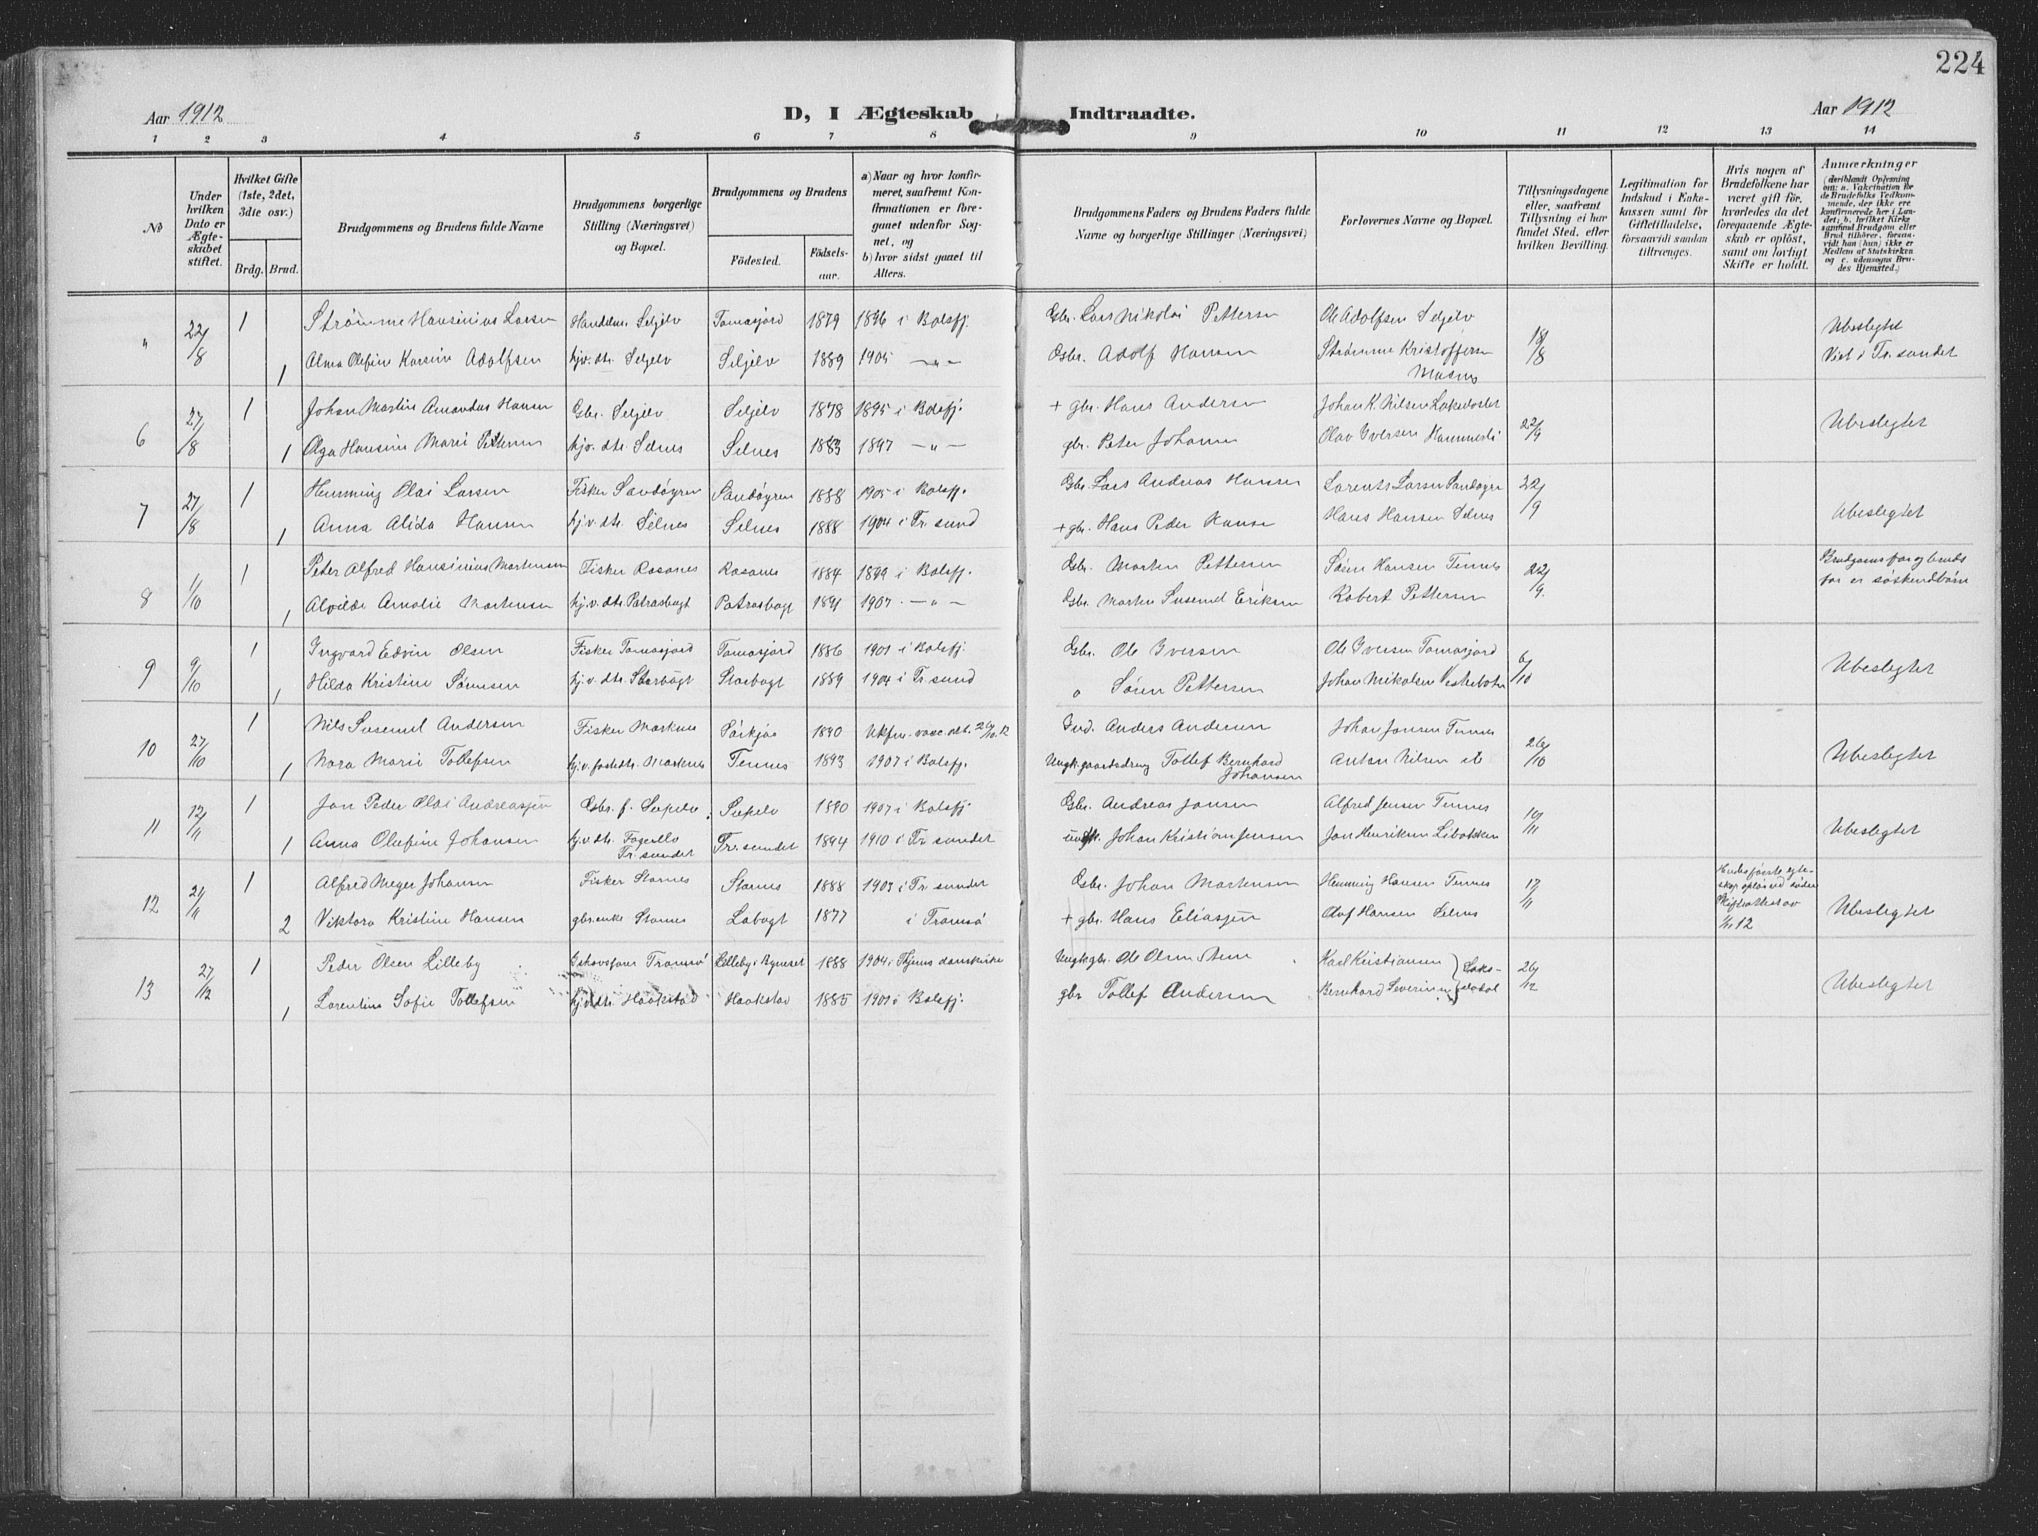 224
Aar 1912
D, I Ægteskab Indtraadte.
Aar 1912
1 2 3 4 5 6 7 8 9 10 11 12 13 14
No
Under hvilken Dato er Ægteskabet stiftet.
Hvilket Gifte (1ste, 2det, 3die osv.)
Brdg. Brud.
Brudgommens og Brudens fulde Navne
Brudgommens borgerlige Stilling (Næringsvei) og Bopæl.
Brudgommens og Brudens
Födested.
Födsels-aar.
a) Naar og hvor konfirmeret, saafremt Konfirmationen er foregaaet udenfor Sognet, og
b) hvor sidst gaaet til Alters.
Brudgommens Faders og Brudens Faders fulde Navne og borgerlige Stillinger (Næringsvei)
Forlovernes Navne og Bopæl.
Tillysningsdagene eller, saafremt Tillysning ei har fundet Sted, efter hvilken Bevilling.
Legitimation for Indskud i Enkekassen samt for Giftetilladelse, forsaavidt saadan tiltrænges.
Hvis nogen af Brudefolkene har været gift för, hvorledes da det foregaaende Ægteskab er oplöst, samt om lovligt Skifte er holdt.
Anmærkninger
(deriblandt Oplysning om: a. Vakcination for de Brudefolks Vedkommende, der ikke ere konfirmerede her i Landet; b. hvilket Kirkesamfund Brudgom eller Brud tilhörer, forsaavidt han (hun) ikke er Medlem af Statskirken og c. udensogns Brudes Hjemsted.)
" 22/8 1 Strømme Hansinius Larsen Handelsm. Seljelv Tomasjord 1879 1896 i Balsfj. Gbr. Lars Nikolai Pettersen Ole Adolfsen Seljelv 18/8 Ubeslegtet
1 Alma Olefine Karsine Adolfsen hjv. dtr. Seljelv Seljelv 1889 1905 — " — Gsbr. Adolf Hansen Strømme Kristoffersen Viet i Tr. sundet
6 27/8 1 Johan Martin Amandus Hansen Gbr. Seljelv Seljelv 1878 1895 i Balsfj. + gbr. Hans Andersen Johan K. Nilsen 22/9 Ubeslegtet
1 Olga Hansine Marie Pettersen hjv. dtr. Selnes Selnes 1883 1897 — " — gbr. Peter Johansen Olav Iversen Hammerli
7 27/8 1 Henning Olai Larsen Fisker Sandøyren Sandøyren 1888 1905 i Balsfj. Gbr. Lars Andreas Hansen Lorents Larsen Sandøyr 22/9 Ubeslegtet
1 Anna Alida Hansen hjv. dtr. Selnes Selnes 1888 1904 i Tr. sund + gbr. Hans Peder Hansen Hans Hansen Selnes
8 1/10 1 Peter Alfred Hansinius Mortensen Fisker Rasanes Rasanes 1884 1899 i Balsfj. Gbr. Morten Pettersen Søren Hansen Tennes 22/9. Brudgoms far og bruds
1 Alvilde Amalie Mortensen hjv. dtr. Patrasbugt Patrasbogt 1891 1907 — " — Gbr. Morten Susend Eriksen Robert Pettersen far er søskendbørn
9 9/10 1 Ingvard Edvin Olsen Fisker Tomasjord Tomasjord 1886 1901 i Balsfj. Gbr. Ole Iversen Ole Iversen Tomasjord 6/10 Ubeslegtet
1 Hilda Kristine Sørensen hj. v. dtr. Storbugt Storbogt 1889 1904 i Tr. sund " Søren Pettersen Johan Mikalsen
10 27/10 1 Nils Susend Andersen Fisker Markenes Sørkjos 1890 Ukfm. Gmd. Anders Andersen Johan Jensen Tennes 26/10 Ubeslegtet
1 Nora Marie Tollefsen hj. v. fostdtr. Markenes Tennes 1893 1907 i Balsfj. Ungk. gaardsdreng Tollef Bernhard Johansen Anton Nilsen
11 12/11 1 Jon Peder Olai Andreassen Gsbr. f. Sæpelv Sæpelv 1890 1907 i Balsfj Gbr. Andreas Jonsen Alfred Jensen Tennes 10/11 Ubeslegtet
1 Anna Olufine Johansen hj. v. dtr. Fagerlio Tr. sundet Tr. sundet 1894 1910 i Tr. sundet ungk. Johan Kristian Jensen Jon Henriksen
12 21/11 1 Alfred Meyer Johansen Fisker Stornes Stornes 1888 1903 i Tr. sundet Gsbr. Johan Mortensen Henning Hansen Tennes 17/11 Hendes første egte- Ubeslegtet
2 Viktora Kristine Hansen gbr. enke Stornes Labugt 1877 i Tromsø + gbr. Hans Eliassen Olaf Hansen Selnes skap opløs ved døden Skifteattest av
13 27/12 1 Peder Olsen Lilleby Tromsø Lilleby i 1888 1904 i Ungk. gbr. Ole Olsen Karl Kristiansen 26/12 Ubeslegtet
1 Lorentine Sofie Tollefsen hjv. dtr. Haakstad Haakstad 1885 1901 i Balsfj. gbr Tollef Andersen Bernhard Severinsen